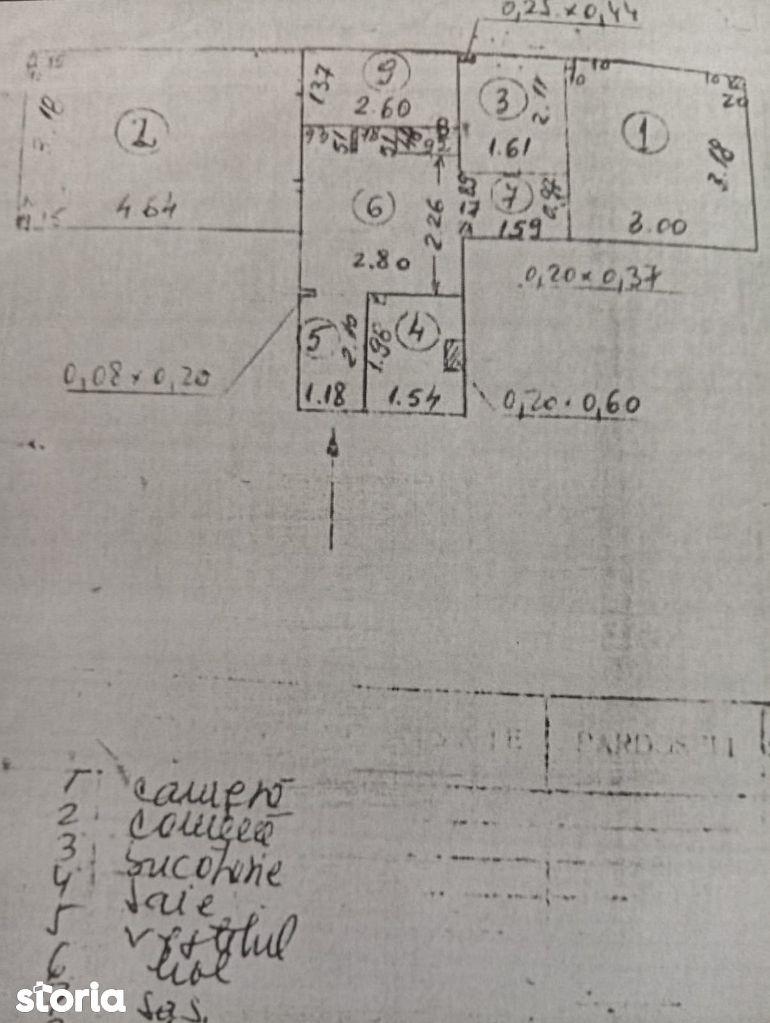 0,25 x 0,44
9
137
2.60
3
2.11
1.61
10
10
10
20
1
3.18
3.00
2
15
3.18
4.64
15
6
2.26
2.80
7
0.97
159
0,20 x 0,37
5
2.10
1.18
4
1.96
1.54
0,08 x 0,20
0,20 . 0,60
PARDOSELI
1 cameră
2 cameră
3 bucătărie
4 baie
5 vestibul
6 hol
7 sas.
storia